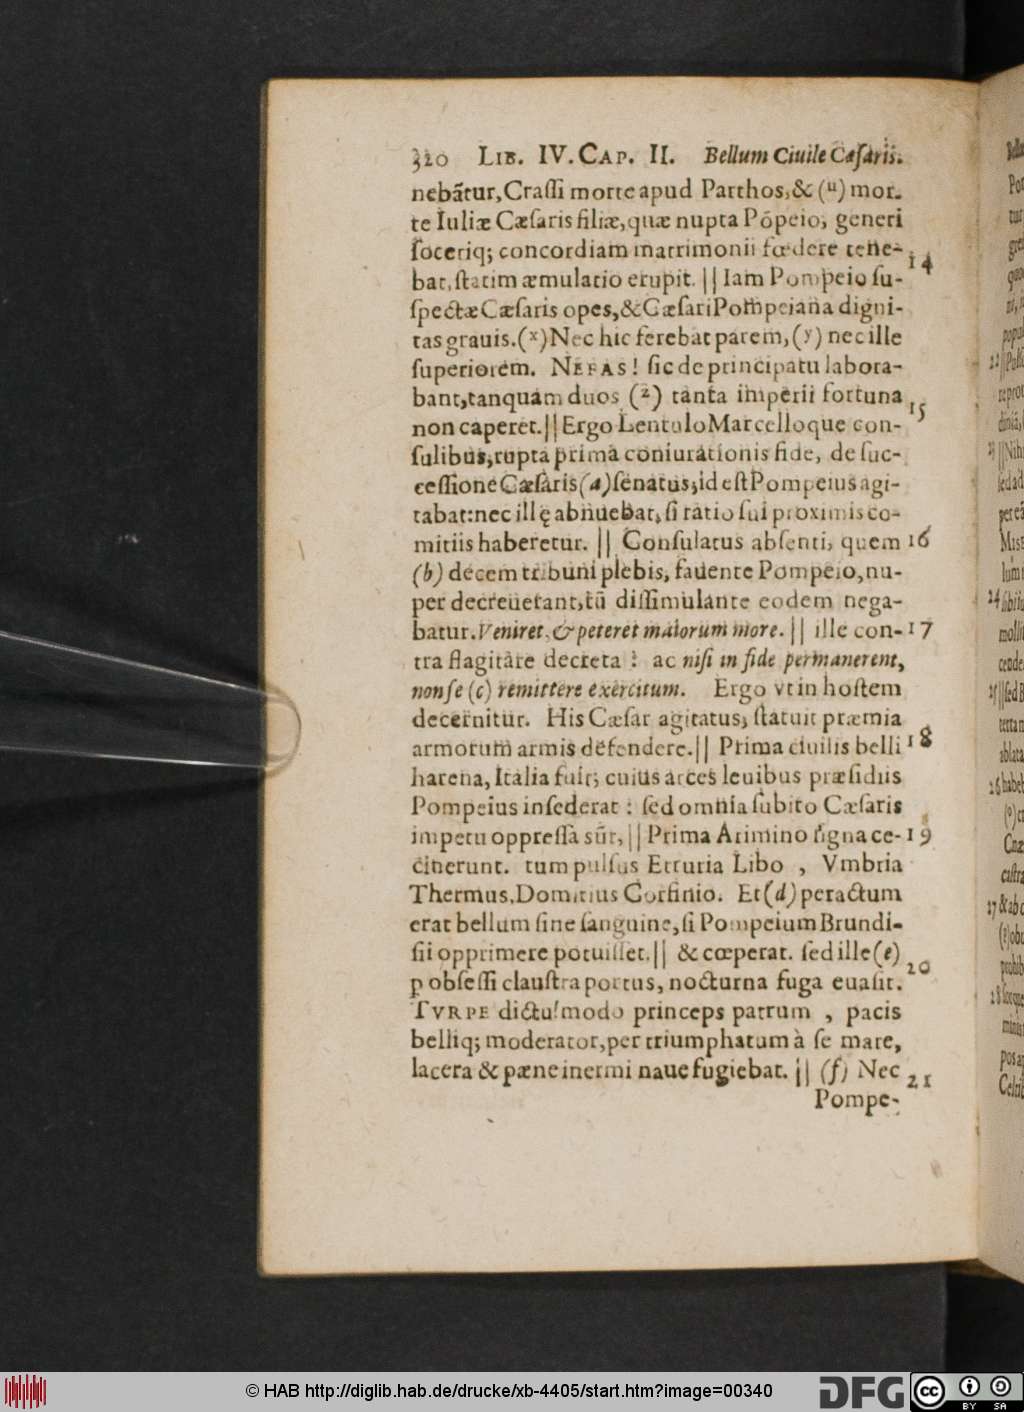 320 LIB. IV. CAP. II. Bellum Ciuile Cæſaris.
nebãtur, Craſſi morte apud Parthos, & (u) mor-
te Iuliæ Cæſaris filiæ, quæ nupta Põpeio, generi
ſoceriq; concordiam matrimonii fœdere tene-
bat, ſtatim æmulatio erupit. || Iam Pompeio ſu- 14
ſpectæ Cæſaris opes, & Cæſari Pompeiana digni-
tas grauis. (x) Nec hic ferebat parem, (y) nec ille
ſuperiorem. NEFAS! ſic de principatu labora-
bant, tanquam duos (z) tanta imperii fortuna
non caperet. || Ergo Lentulo Marcelloque con- 15
ſulibus, rupta prima coniurationis fide, de ſuc-
ceſſione Cæſaris (a) ſenatus, id eſt Pompeius agi-
tabat: nec ille abnuebat, ſi ratio ſui proximis co-
mitiis haberetur. || Conſulatus abſenti, quem 16
(b) decem tribuni plebis, fauente Pompeio, nu-
per decreuerant, tũ diſſimulante eodem nega-
batur. Veniret, & peteret maiorum more. || ille con- 17
tra flagitare decreta : ac niſi in fide permanerent,
non ſe (c) remittere exercitum. Ergo vt in hoſtem
decernitur. His Cæſar agitatus, ſtatuit præmia
armorum armis defendere. || Prima ciuilis belli 18
harena, Italia fuit; cuius arces leuibus præſidiis
Pompeius inſederat : ſed omnia ſubito Cæſaris
impetu oppreſſa sũt, || Prima Arimino ſigna ce- 19
cinerunt. tum pulſus Etruria Libo , Vmbria
Thermus, Domitius Corfinio. Et (d) peractum
erat bellum ſine ſanguine, ſi Pompeium Brundi-
ſii opprimere potuiſſet. || & cœperat. ſed ille (e) 20
p obſeſſi clauſtra portus, nocturna fuga euaſit.
TVRPE dictu! modo princeps patrum , pacis
belliq; moderator, per triumphatum à ſe mare,
lacera & pæne inermi naue fugiebat. || (f) Nec 21
Pompe-
© HAB http://diglib.hab.de/drucke/xb-4405/start.htm?image=00340
DFG
cc BY SA